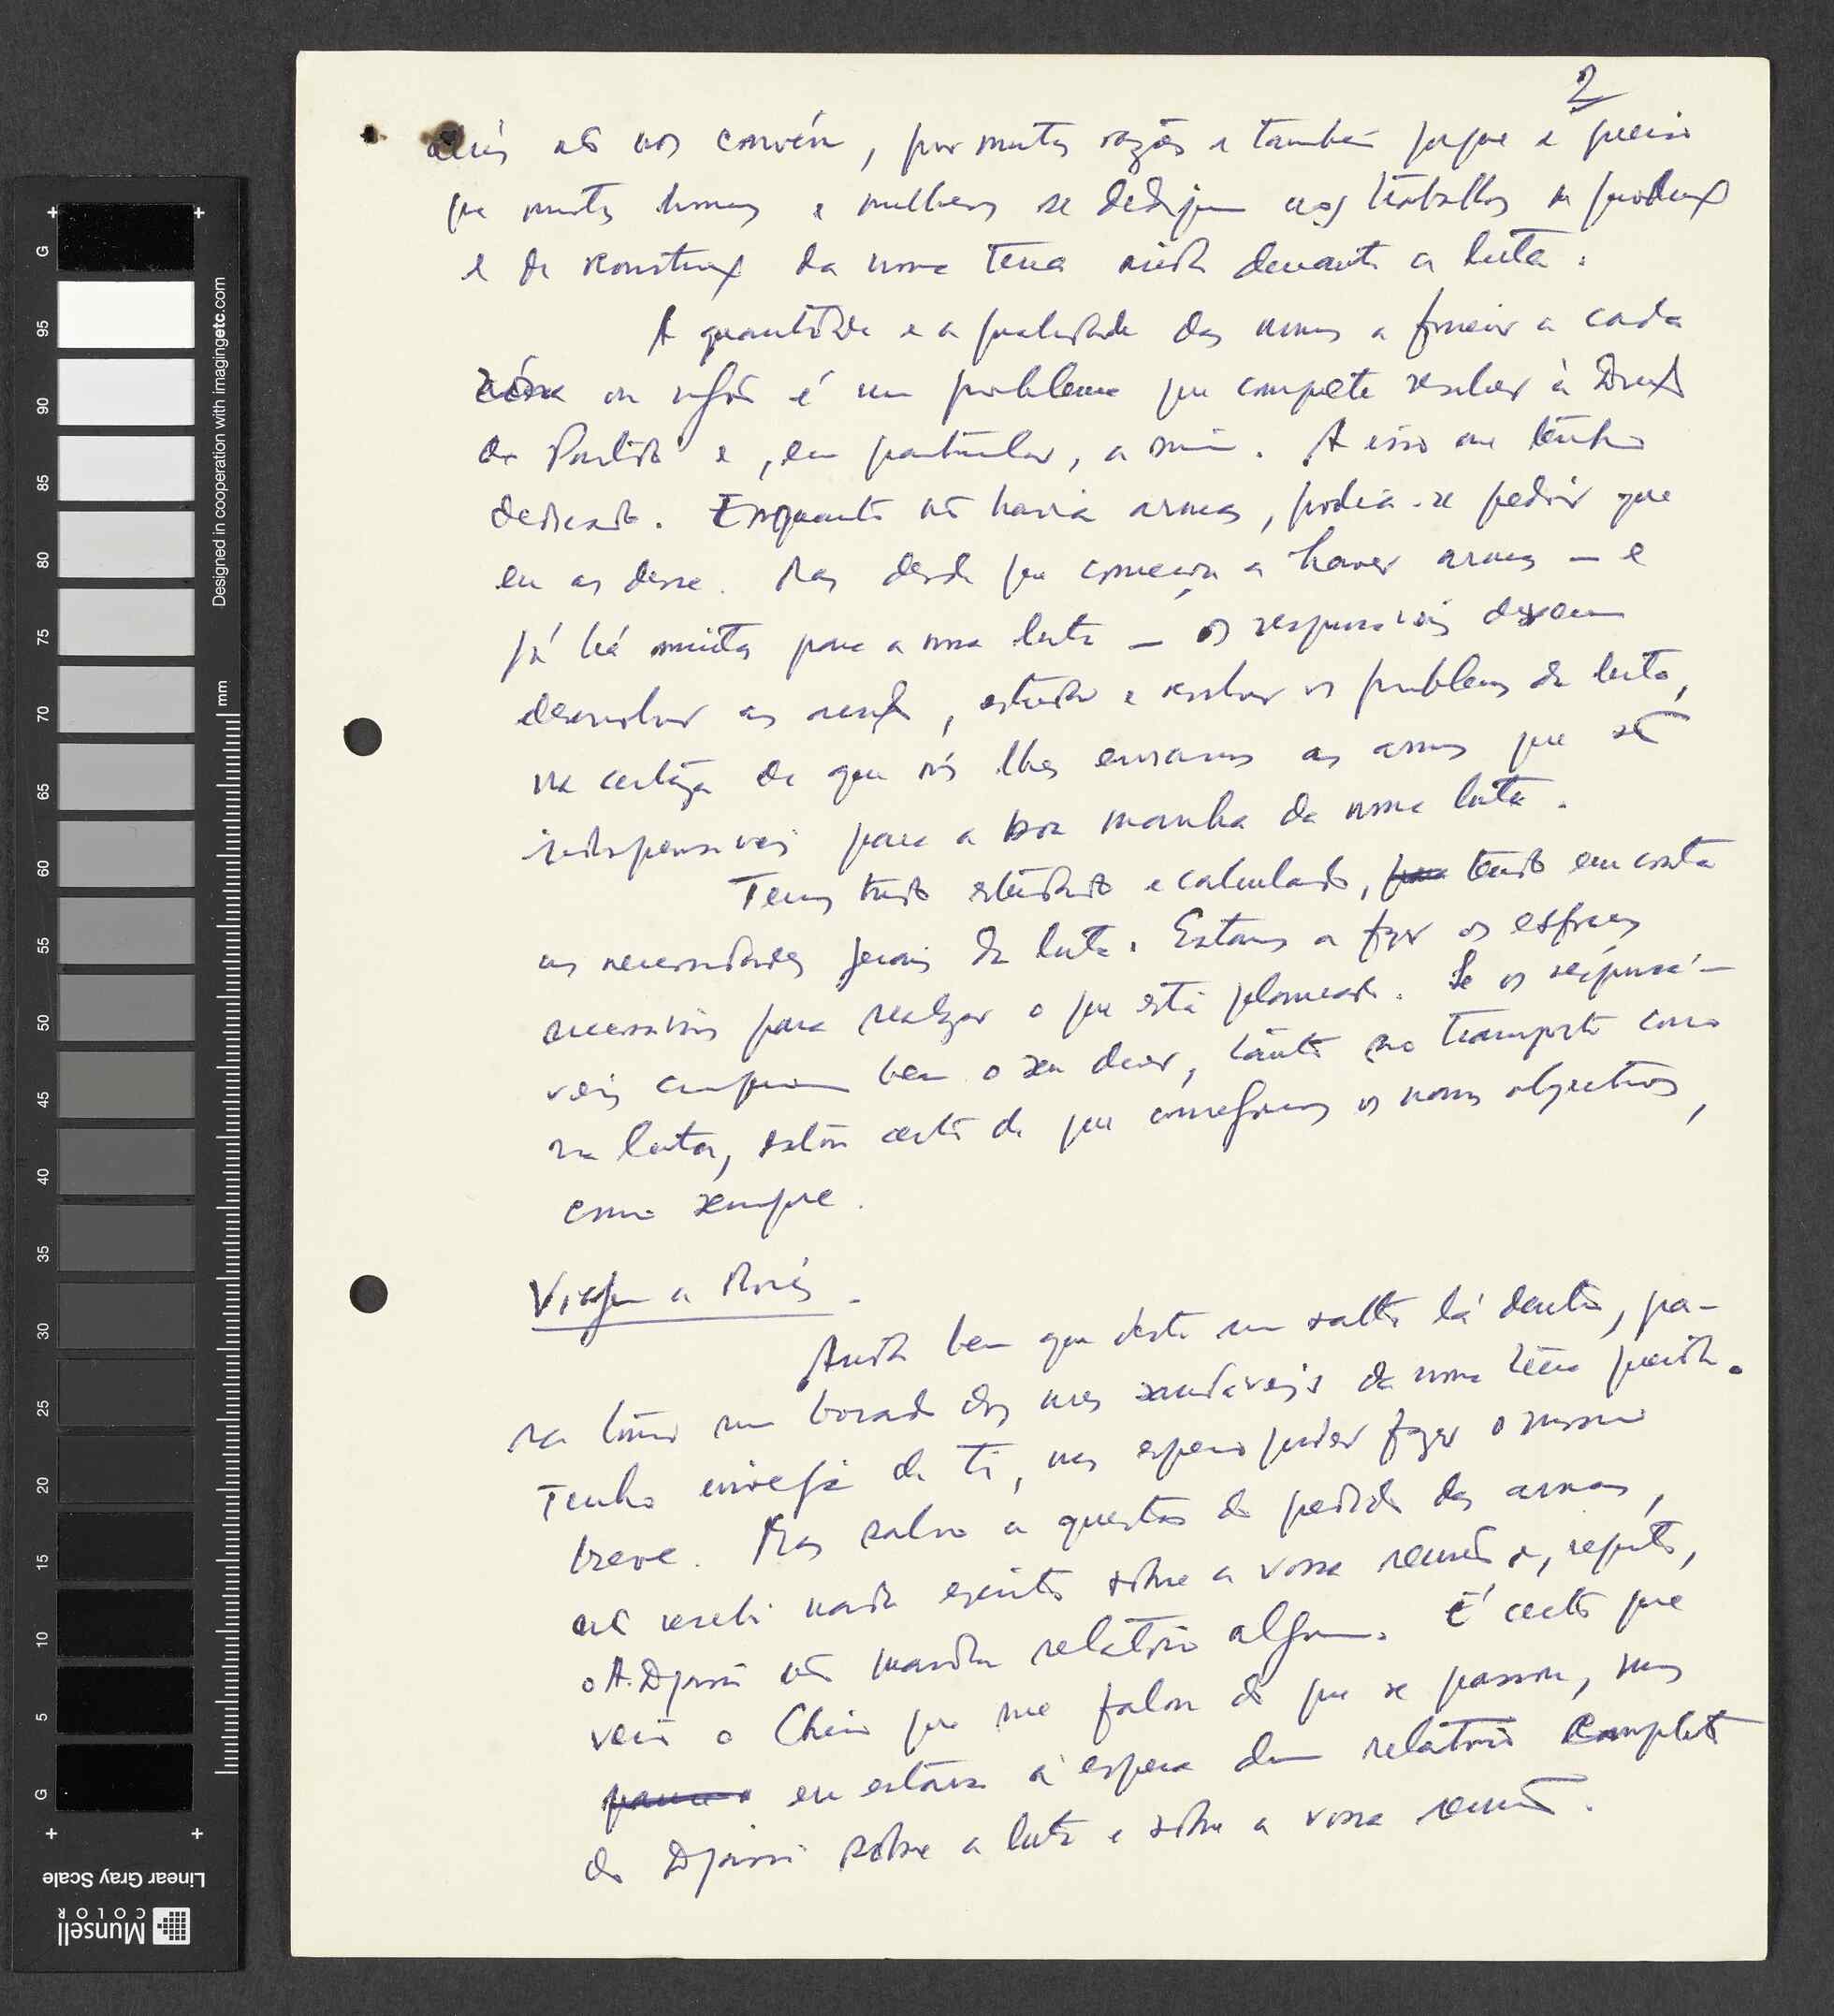 2
aliás não nos convém, por muitas razões e também porque é preciso
que muitos homens e mulheres se dediquem aos trabalhos da produção
e de reconstrução da nossa terra ainda durante a luta.
A quantidade e a qualidade das armas a fornecer a cada
zona ou região é um problema que compete resolver à Direcção
do Partido e, em particular, a mim. A isso me tenho
dedicado. Enquanto não havia armas, podia-se pedir que
eu as desse. Mas desde que começou a haver armas — e
já há muitas para a nossa luta — os responsáveis devem
desenvolver as acções, estudar e resolver os problemas da luta,
na certeza de que nós lhes enviamos as armas que são
indispensáveis para a boa marcha da nossa luta.
Temos tudo estudado e calculado, para tendo em conta
as necessidades gerais da luta. Estamos a fazer os esforços
necessários para realizar o que está planeado. Se os responsá-
veis cumprirem bem o seu dever, tanto no transporte como
na luta, estou certo de que conseguiremos os nossos objectivos,
como sempre.
Viagem a Morés.
Ainda bem que deste um salto lá dentro, pa-
ra tomar um bocado dos ares saudáveis da nossa terra querida.
Tenho inveja de ti, mas espero poder fazer o mesmo
breve. Mas salvo a questão do pedido das armas,
não recebi nada escrito sobre a vossa reunião e, repito,
o A. Djassi não mandou relatório algum. É certo que
veio o Chico que me falou do que se passou, mas
eu estava à espera dum relatório completo
do Djassi sobre a luta e sobre a vossa reunião.
Designed in cooperation with imagingetc.com
mm
G
95
90
85
80
75
70
65
60
55
50
45
40
35
30
25
20
15
10
5
G
Linear Gray Scale
Munsell
COLOR